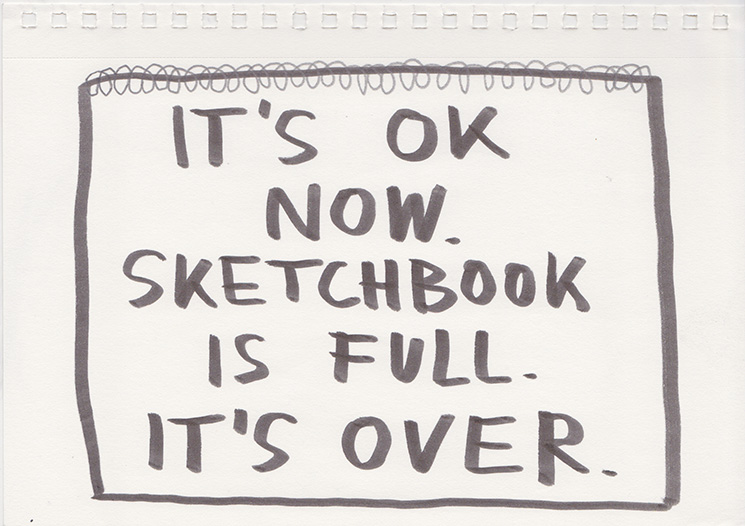 IT'S OK
NOW.
SKETCHBOOK
IS FULL.
IT'S OVER.